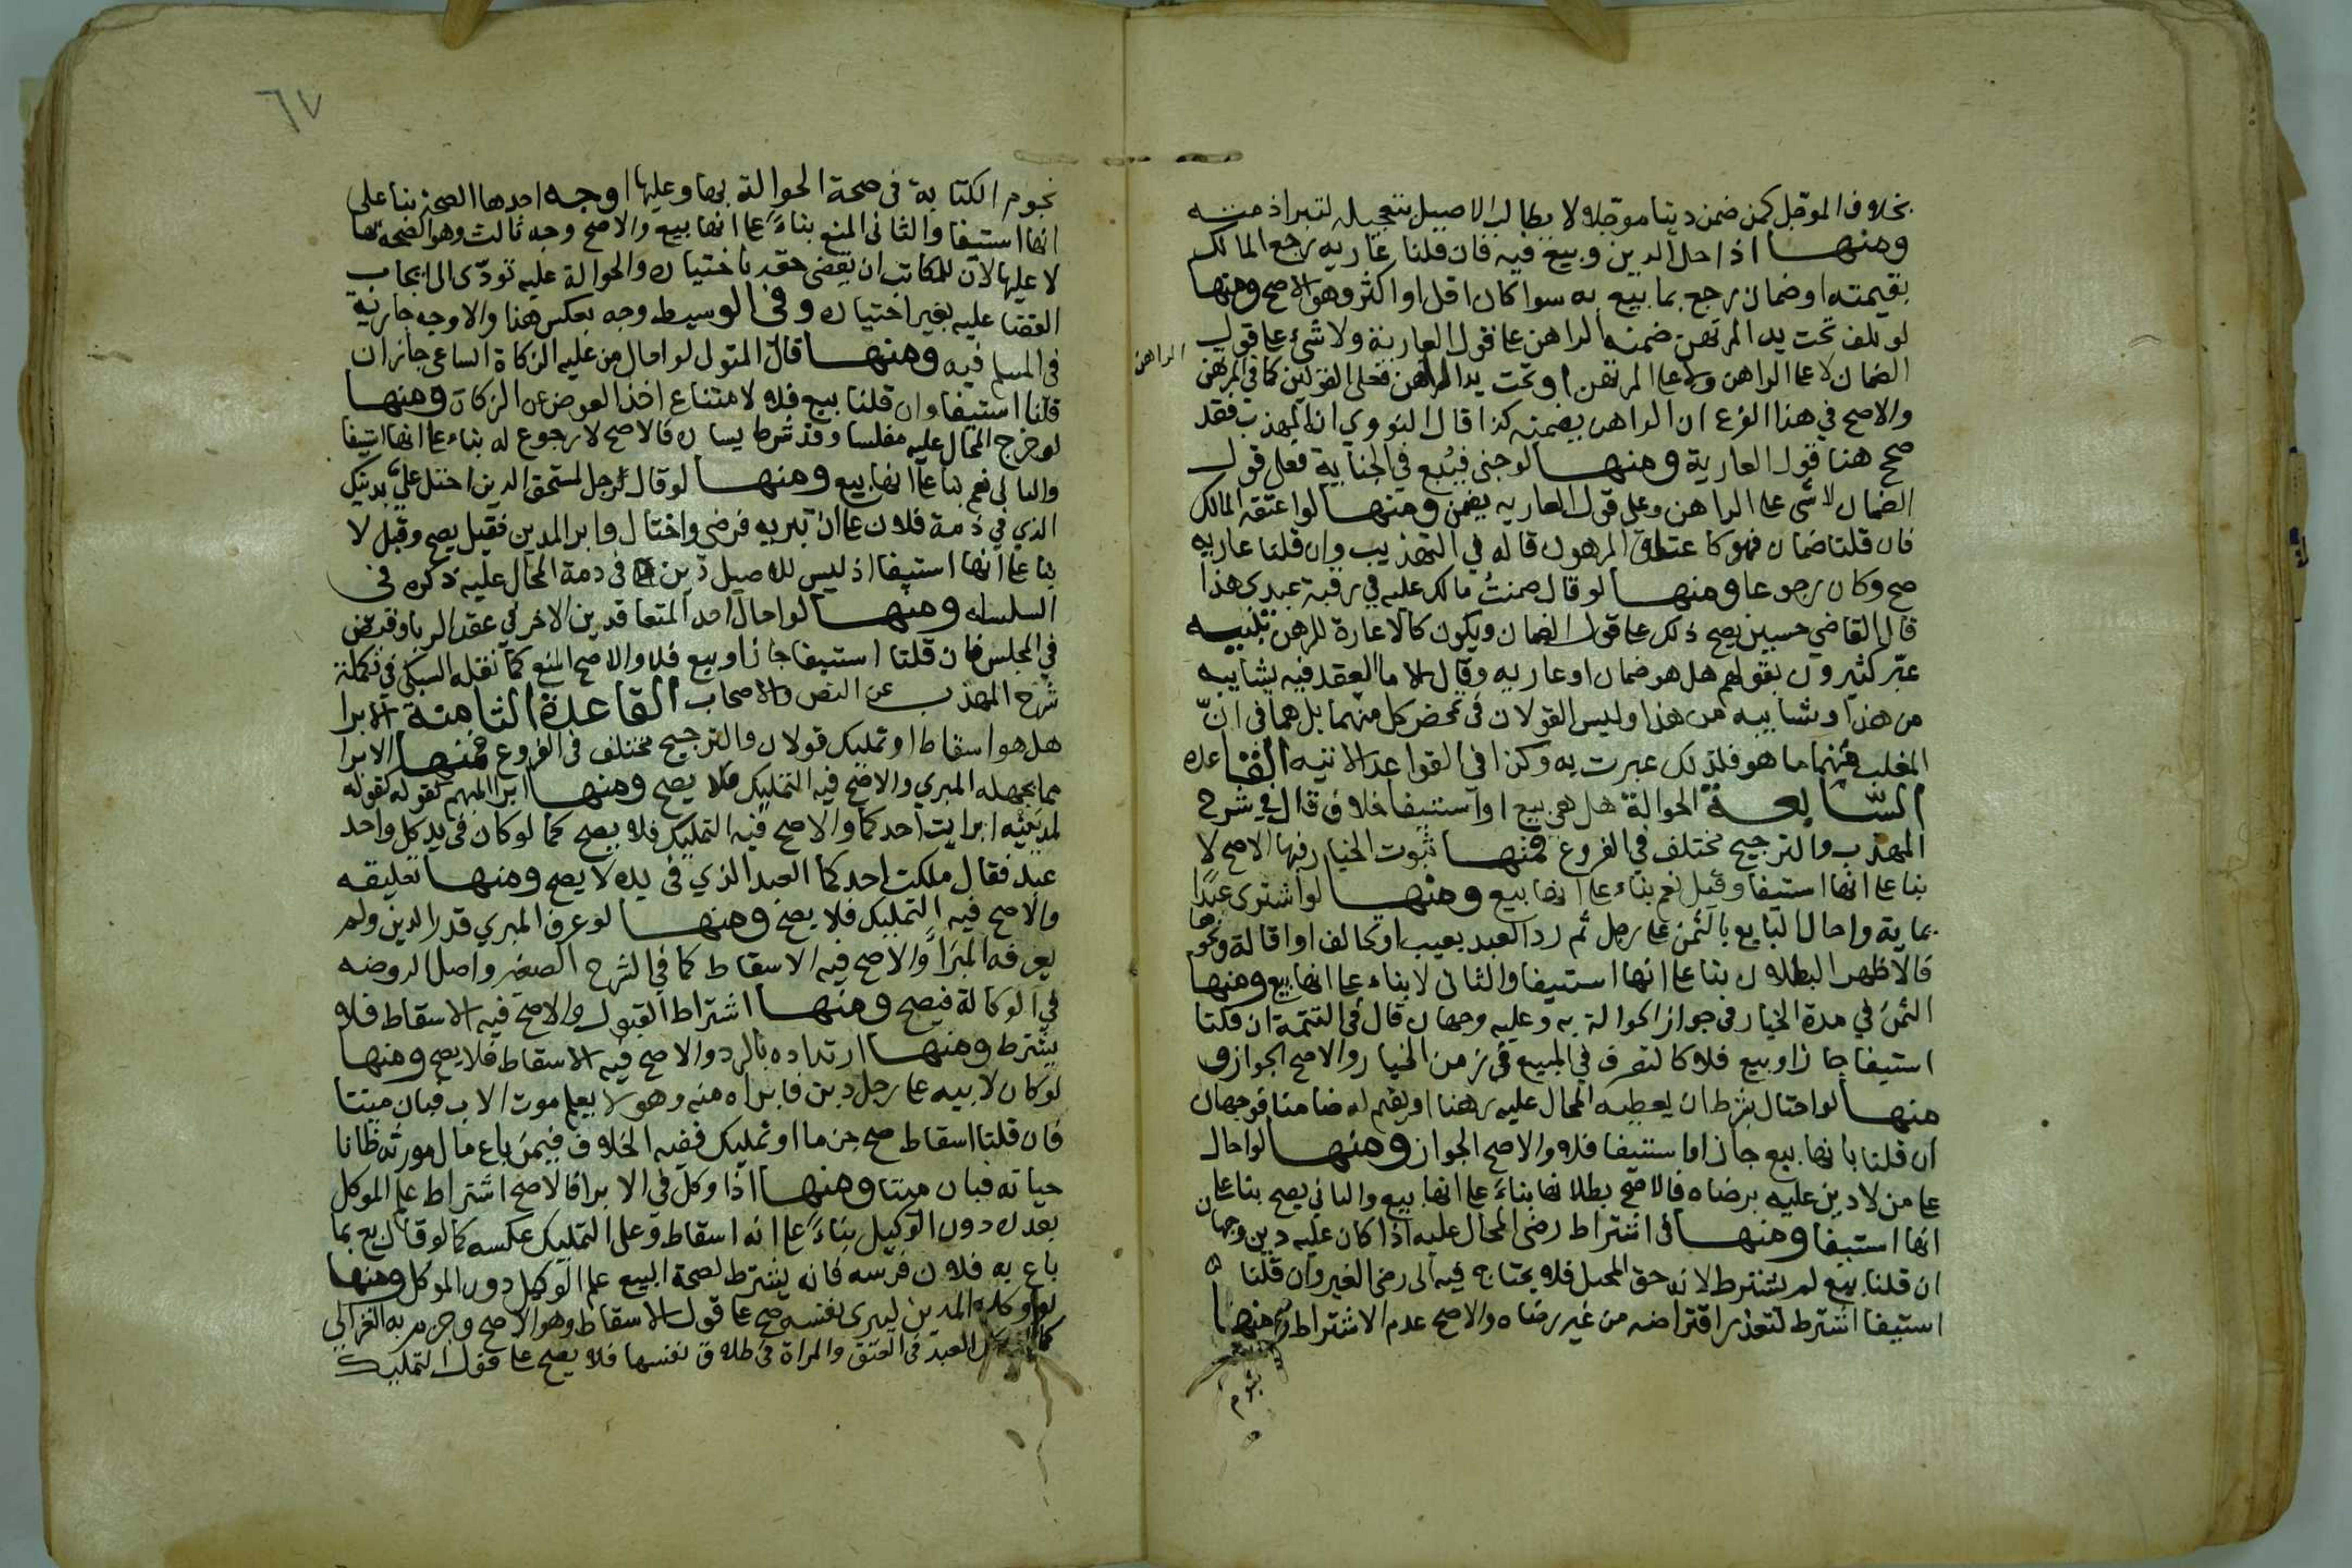 بخلاف الموجل كمن ضمن دينا موجلا لا يطالب الاصيل بتعجيله لتبرا ذمته
ومنها اذا حل الدين وبيع فيه فان قلنا عاريه رجع المالك
بقيمته او ضمان رجع بما بيع به سوا كان اقل او اكثر وهو الاصح ومنها
لو تلف تحت يد المرتهن ضمنه الراهن على قول العارية ولا شيء على قول
الراهن
الضمان لا على الراهن ولا على المرتهن او تحت يد الراهن فعلى القولين كما في المرتهن
والاصح في هذا الفرع ان الراهن يضمنه كذا قال النووي انه المهذب فقد
صحح هنا قول العارية ومنها لو جنى فبيع في الجناية فعلى قول
الضمان لا شي على الراهن وعلى قول العاريه يضمن ومنها لو اعتقه المالك
فان قلنا ضمان فهو كاعتاق المرهون قاله في التهذيب وان قلنا عاريه
صح وكان رجوعا ومنها لو قال ضمنت مالك عليه في رقبة عبدي هذا
قال القاضي حسين يصح ذلك على قول الضمان ويكون كالاعارة للرهن تنبيه
عبر كثيرون بقولهم هل هو ضمان او عاريه وقال الامام العقد فيه شايبه
من هذا وشايبه من هذا وليس القولان في تمحض كل منهما بل هما في ان
المغلب منهما ما هو فلذلك عبرت به وكذا في القواعد الاتيه القاعده
السابعة الحوالة هل هي بيع او استيفا خلاف قال في شرح
المهذب والترجيح مختلف في الفروع فمنها ثبوت الخيار فيها الاصح لا
بنا على انها استيفا وقيل نعم بناء على انها بيع ومنها لو اشترى عبدا
بماية واحال البايع بالثمن على رجل ثم رد العبد بعيب او تحالف او اقالة ونحوها
فالاظهر البطلان بنا على انها استيفا والثانى لا بناء على انها بيع ومنها
الثمن في مدة الخيار في جواز الحوالة به وعليه وجهان قال في التتمة ان قلنا
استيفا جاز او بيع فلا كالتصرف في المبيع في زمن الخيار والاصح الجواز و
منها لو احتال بشرط ان يعطيه المحال عليه رهنا او يقيم له ضامنا فوجهان
ان قلنا بانها بيع جاز او استيفا فلا والاصح الجواز ومنها لو احال
على من لا دين عليه برضاه فالاصح بطلانها بناء على انها بيع والثاني يصح بنا على
انها استيفا ومنها في اشتراط رضى المحال عليه اذا كان عليه دين وجهان
ان قلنا بيع لم يشترط لانه حق المحيل فلا يحتاج فيه الى رضى الغير وان قلنا
استيفا اشترط لتعذر اقتراضه من غير رضاه والاصح عدم الاشتراط ومنها
نجوم
٦٧
نجوم الكتابة في صحة الحوالة بها وعليها اوجه احدها الصحة بنا على
انها استيفا والثانى المنع بناء على انها بيع والاصح وجه ثالث وهو الصحة بها
لا عليها لان للمكاتب ان يقضى حقه باختياره والحوالة عليه تودى الى ايجاب
القضا عليه بغير اختياره وفي الوسيط وجه بعكس هذا والاوجه جارية
في المسلم فيه ومنها قال المتولى لو احال من عليه الزكاة الساعى جاز ان
قلنا استيفا وان قلنا بيع فلا لامتناع اخذ العوض عن الزكاة ومنها
لو خرج المحال عليه مفلسا وقد شرط يساره فالاصح لا رجوع له بناء على انها استيفا
والثانى نعم بنا على انها بيع ومنها لو قال رجل لمستحق الدين احتل على بدينك
الذي في ذمة فلان على ان تبريه فرضي واحتال وابرا المدين فقيل يصح وقيل لا
بنا على انها استيفا اذ ليس للاصيل دين في ذمة المحال عليه ذكره في
السلسله ومنها لو احال احد المتعاقدين الاخر في عقد الربا وقبض
في المجلس فان قلنا استيفا جاز او بيع فلا والاصح المنع كما نقله السبكي في تكملة
شرح المهذب عن النص والاصحاب القاعدة الثامنة الابرا
هل هو اسقاط او تمليك قولان والترجيح مختلف في الفروع فمنها الابرا
مما يجهله المبري والاصح فيه التمليك فلا يصح ومنها ابرا المبهم كقوله كقوله
لمدينيه ابرات احدكما والاصح فيه التمليك فلا يصح كما لو كان في يد كل واحد
عبد فقال ملكت احدكما العبد الذي في يده لا يصح ومنها تعليقه
والاصح فيه التمليك فلا يصح ومنها لو عرف المبري قدر الدين ولم
يعرفه المبرا والاصح فيه الاسقاط كما في الشرح الصغير واصل الروضه
في الوكالة فيصح ومنها اشتراط القبول والاصح فيه الاسقاط فلا
يشترط ومنها ارتداده بالرد والاصح فيه الاسقاط فلا يصح ومنها
لو كان لابيه على رجل دين فابراه منه وهو لا يعلم موت الاب فبان ميتا
فان قلنا اسقاط صح جزما او تمليك ففيه الخلاف فيمن باع مال مورثه ظانا
حياته فبان ميتا ومنها اذا وكل في الابرا فالاصح اشتراط علم الموكل
بقدره دون الوكيل بناء على انه اسقاط وعلى التمليك عكسه كما لو قال بع بما
باع به فلان فرسه فانه يشترط لصحة البيع علم الوكيل دون الموكل ومنها
لو وكل المدين ليبرى نفسه صح على قول الاسقاط وهو الاصح وجزم به الغزالي
كما العبد في العتق والمراة في طلاق نفسها فلا يصح على قول التمليك